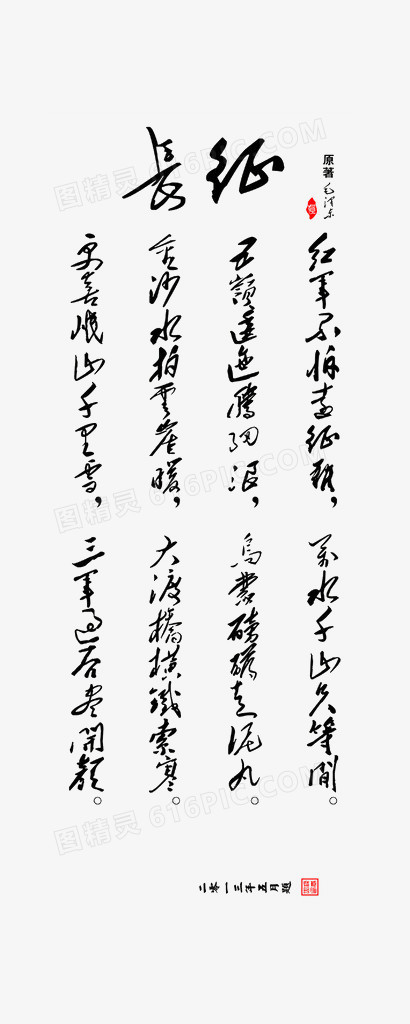 長征
原著 毛泽东
紅軍不怕遠征難，
萬水千山只等閒。
五嶺逶迤騰細浪，
烏蒙磅礴走泥丸。
金沙水拍雲崖暖，
大渡橋橫鐵索寒。
更喜岷山千里雪，
三軍過後盡開顏。
二零一三年五月題
图精灵 616PIC.COM